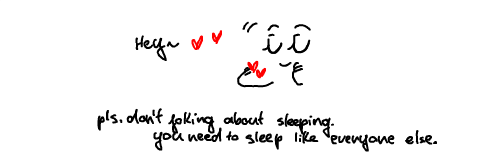 Hey~
pls. don't joking about sleeping.
you need to sleep like everyone else.